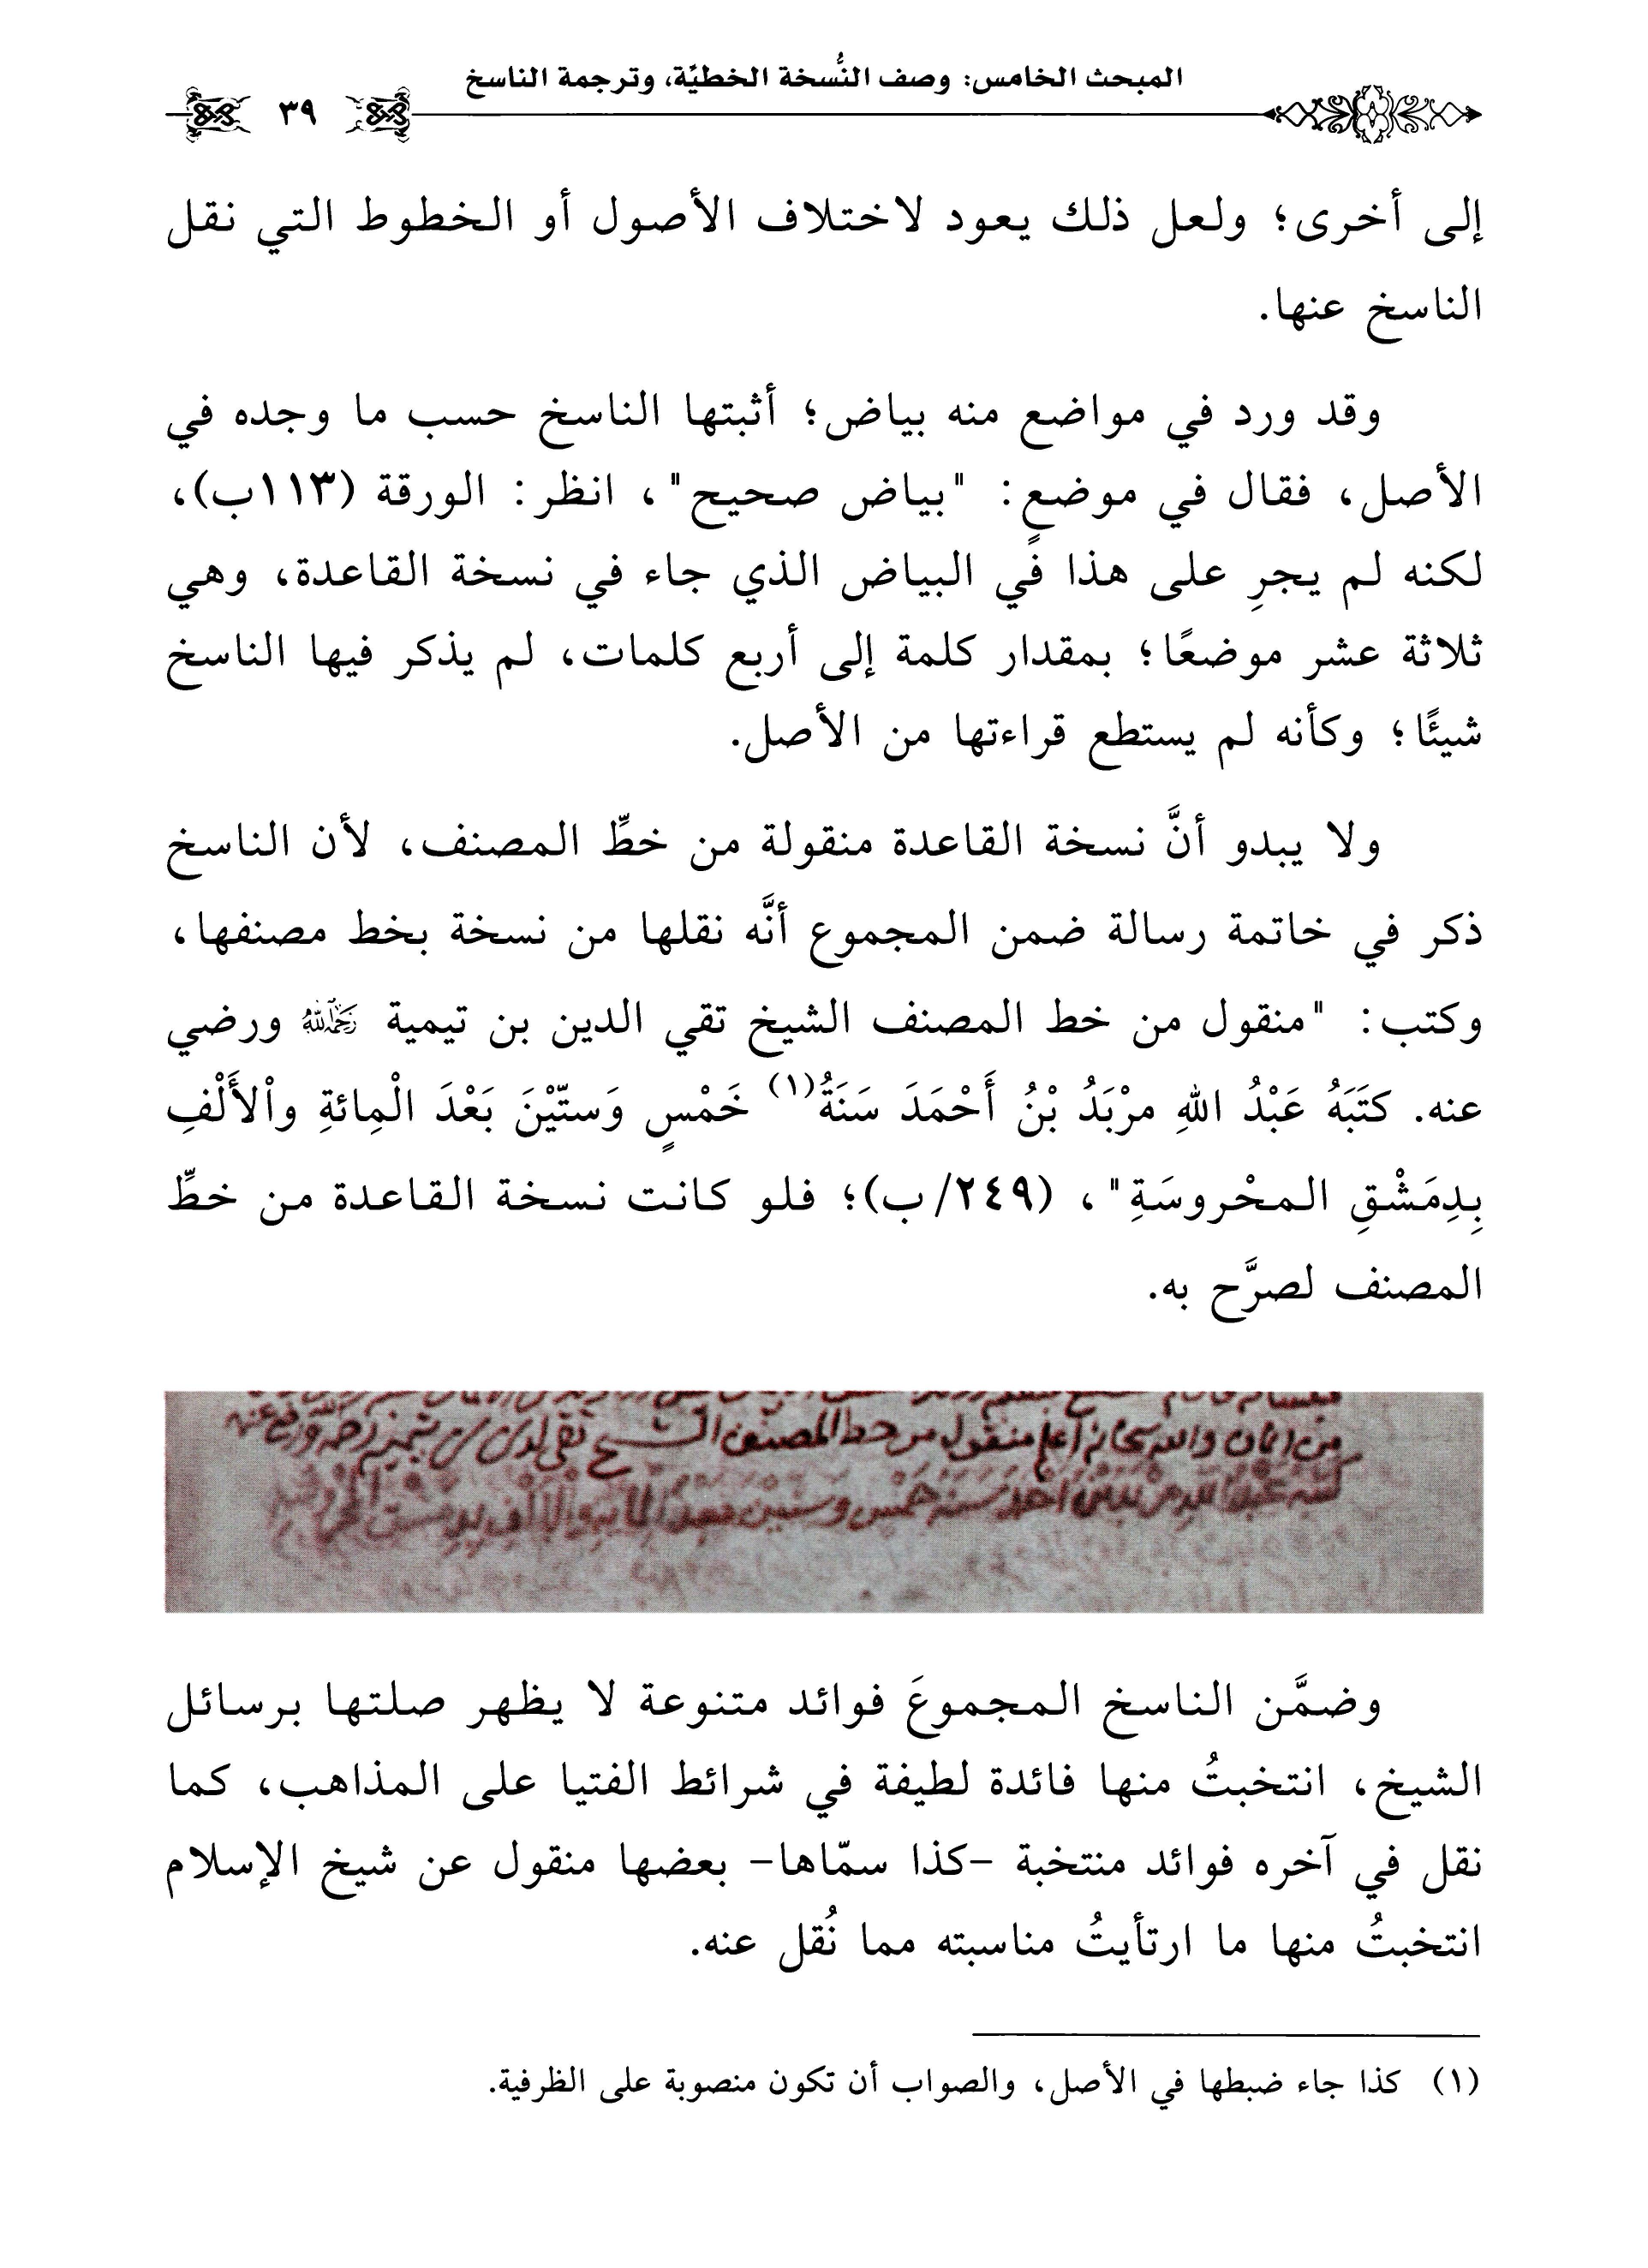 المبحث الخامس: وصف النُّسخة الخطيّة، وترجمة الناسخ
٣٩
إلى أخرى؛ ولعل ذلك يعود لاختلاف الأصول أو الخطوط التي نقل
الناسخ عنها.
وقد ورد في مواضع منه بياض؛ أثبتها الناسخ حسب ما وجده في
الأصل، فقال في موضعٍ: "بياض صحيح"، انظر: الورقة (١١٣ب)،
لكنه لم يجرِ على هذا في البياض الذي جاء في نسخة القاعدة، وهي
ثلاثة عشر موضعًا؛ بمقدار كلمة إلى أربع كلمات، لم يذكر فيها الناسخ
شيئًا؛ وكأنه لم يستطع قراءتها من الأصل.
ولا يبدو أنَّ نسخة القاعدة منقولة من خطِّ المصنف، لأن الناسخ
ذكر في خاتمة رسالة ضمن المجموع أنَّه نقلها من نسخة بخط مصنفها،
وكتب: "منقول من خط المصنف الشيخ تقي الدين بن تيمية رَحِمَهُ اللهُ ورضي
عنه. كتَبَهُ عَبْدُ اللهِ مرْبَدُ بْنُ أَحْمَدَ سَنَةُ(١) خَمْسٍ وَستّيْنَ بَعْدَ الْمِائةِ واْلأَلْفِ
بِدِمَشْقِ المحْروسَةِ"، (٢٤٩/ب)؛ فلو كانت نسخة القاعدة من خطِّ
المصنف لصرَّح به.
من الايمان والله سبحانه اعلم منقول من خط المصنف الشيخ تقي الدين بن تيمية رحمه الله ورضي عنه
كتبه عبد الله مربد بن احمد سنة خمس وستين بعد المائة والالف بدمشق المحروسة
وضمَّن الناسخ المجموعَ فوائد متنوعة لا يظهر صلتها برسائل
الشيخ، انتخبتُ منها فائدة لطيفة في شرائط الفتيا على المذاهب، كما
نقل في آخره فوائد منتخبة -كذا سمّاها- بعضها منقول عن شيخ الإسلام
انتخبتُ منها ما ارتأيتُ مناسبته مما نُقل عنه.
(١) كذا جاء ضبطها في الأصل، والصواب أن تكون منصوبة على الظرفية.